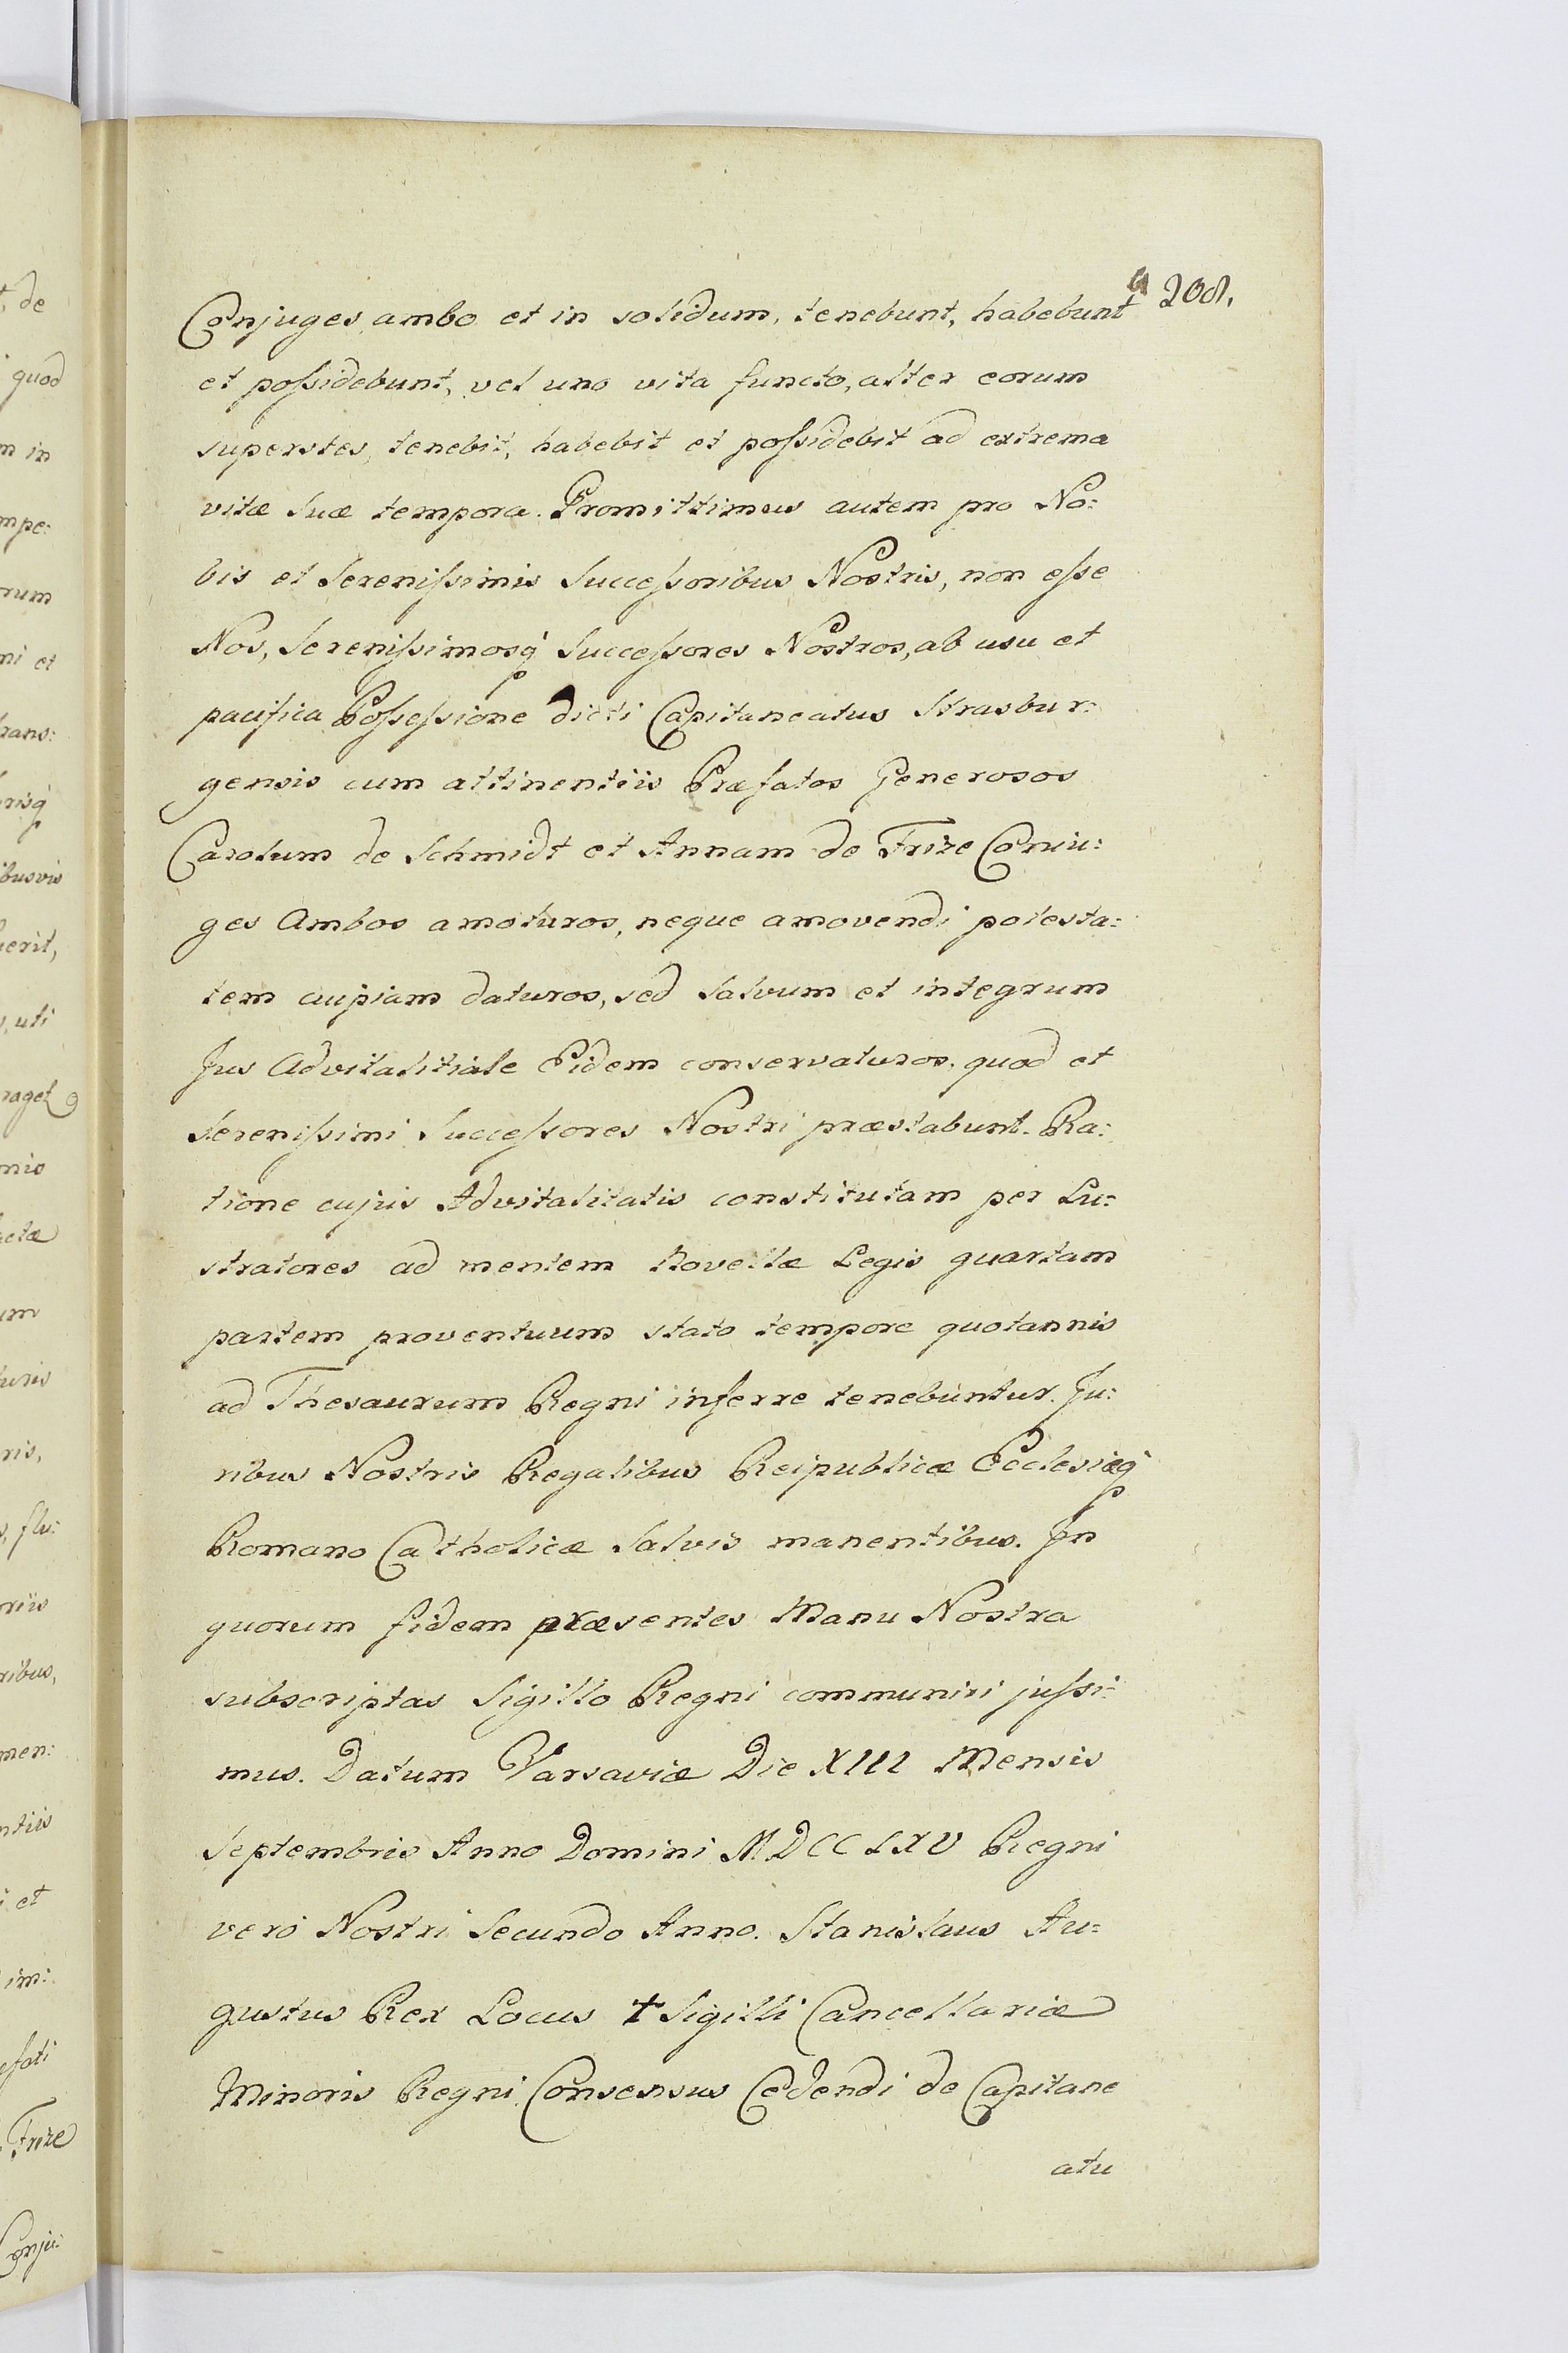 208.
Conjuges ambo et in solidum, tenebunt, habebunt
et poſsidebunt, vel uno vita functo, alter eorum
superstes, tenebit, habebit et poſsidebit ad extrema
vitæ suæ tempora. Promittimus autem pro No:
bis et Sereniſsimis Succeſsoribus Nostris, non eſse
Nos, Sereniſsimosq́ Succeſsores Nostros, ab usu et
pacifica Poſseſsione dicti Capitaneatus Strasbur:
gensis cum attinentiis Præfatos Generosos
Carolum de Schmidt et Annam de Frize Coniu:
ges Ambos amoturos, neque amovendi potesta:
tem cuipiam daturos, sed salvum et integrum
Jus Advitalitiale Eidem conservaturos. quod et
Sereniſsimi Succeſsores Nostri præstabunt. Ra:
tione cujus Advitalitatis constitutam per Lu:
stratores ad mentem Novellæ Legis quartam
partem proventuum stato tempore quotannis
ad Thesaurum Regni inferre tenebuntur. Ju:
ribus Nostris Regalibus Reipublicæ Ecclesiæq́
Romano Catholicæ Salvis manentibus. Jn
quorum fidem præsentes Manu Nostra
subscriptas Sigillo Regni communiri juſsi:
mus. Datum Varsaviæ Die XIII Mensis
Septembris Anno Domini MDCCLXV Regni
vero Nostri Secundo Anno. Stanislaus Au:
gustus Rex Locus † Sigilli Cancellariæ
Minoris Regni. Consensus Cedendi de Capitane
atu